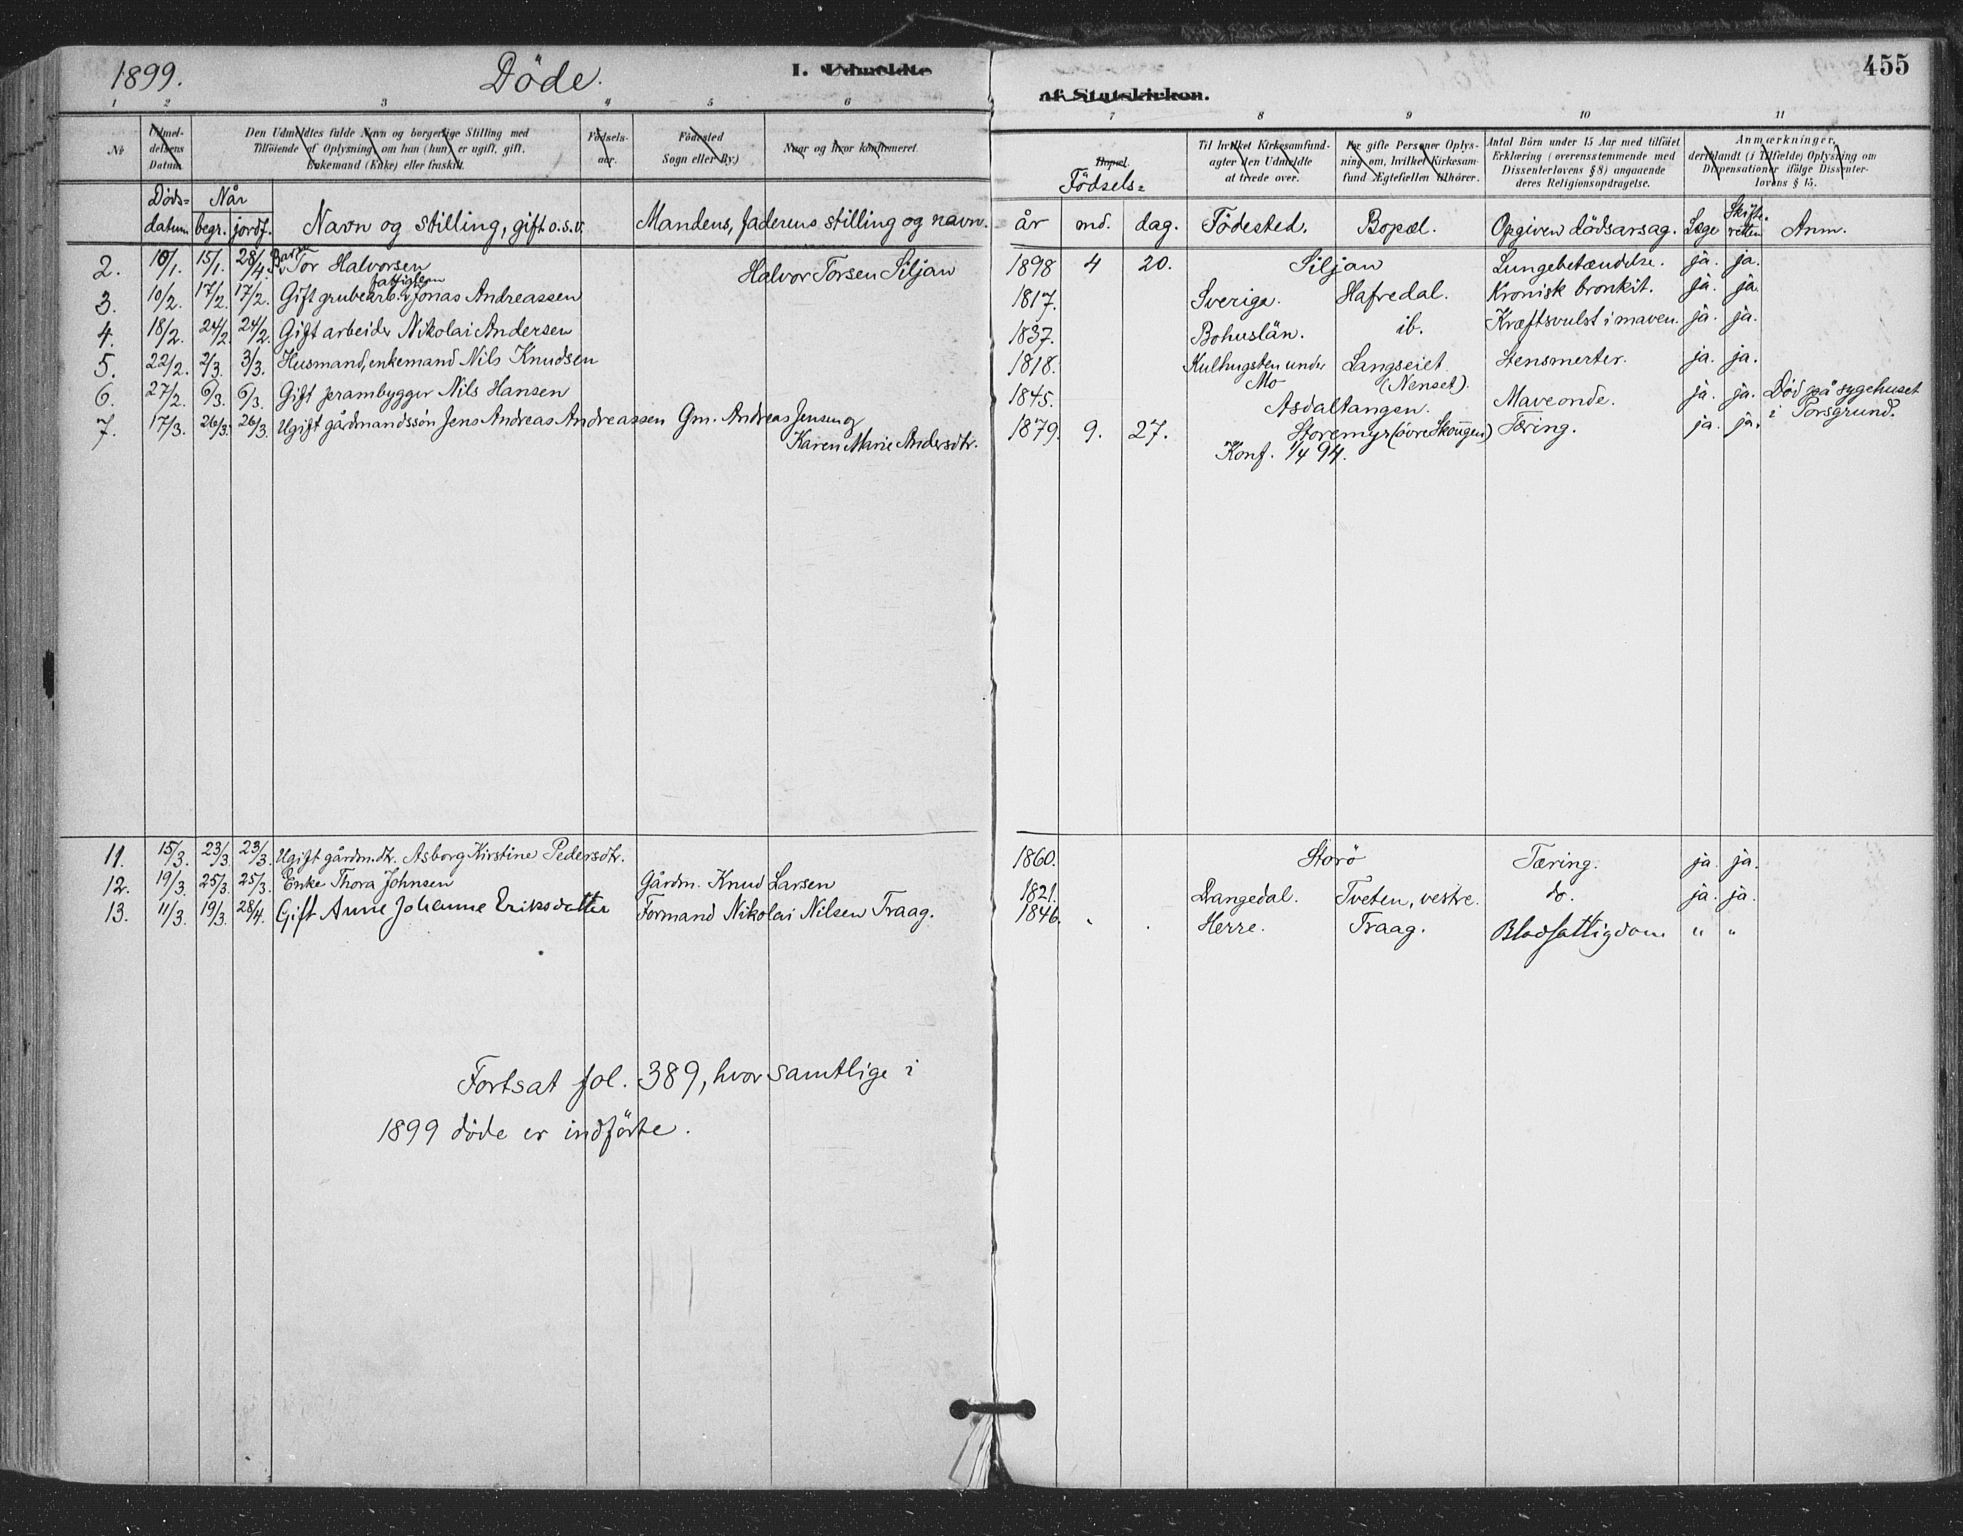 1899. Döde. I. Udmeldte
af Statskirken. 455
1 2 3 4 5 6 7 8 9 10 11
No
Udmeldelsens Datum.
Den Udmeldtes fulde Navn og borgerlige Stilling med Tilföiende af Oplysning om han (hun) er ugift, gift, Enkemand (Enke) eller fraskilt.
Födsels-aar.
Födested Sogn eller By.)
Naar og hvor konfirmeret.
Bopæl.
Til hvilket Kirkesamfund agter den Udmeldte at træde over.
For gifte Personer Oplysning om, hvilket Kirkesamfund Ægtefællen tilhører.
Antal Börn under 15 Aar med tilföiet Erklæring (overensstemmende med Dissenterlovens § 8) angaaende deres Religionsopdragelse.
Anmærkninger, deriblandt (i Tilfælde) Oplysning om Dispensationer ifölge Dissenterlovens § 15.
Döds=datum. Når begr. jordf. Navn og stilling, gift o.s.v. Mandens, faderens stilling og navn. Födsels= år md. dag. Födested. Bopæl. Opgiven dödsarsag. Læge Skifteretten Anm.
2. 10/1. 15/1. 28/4. Barn Tor Halvorsen Halvor Torsen Siljan 1898 4 20. Siljan Lungebetændelse. ja. ja.
3. 10/2. 17/2. 17/2. Gift grubearb. fattiglem Jonas Andreassen 1817. Sverige. Hafredal. Kronisk bronkit. ja. ja
4. 18/2. 24/2. 24/2. Gift arbeider Nikolai Andersen 1837. Bohuslän. ib. Kræftsvulst i maven. ja. ja.
5. 22/2. 2/3. 3/3. Husmand, enkemand Nils Knudsen 1818. Kulhugsten under Mo Langseiet (Nenset). Stensmerter. ja. ja.
6. 27/2. 6/3. 6/3. Gift prambygger Nils Hansen 1845. Asdaltangen. Maveonde. ja. ja. Död på sygehuset i Porsgrund.
7. 17/3. 26/3. 26/3. Ugift gårdmandssön Jens Andreas Andreassen Gm. Andreas Jensen og Karen Marie Andersdtr. 1879. 9. 27. Storemyr (övre Skougen) Tæring. ja. ja.
Konf. 1/4 94.
11. 15/3. 23/3. 23/3. Ugift gårdm.dtr. Asborg Kirstine Pedersdtr. 1860. Storö Tæring. ja. ja.
12. 19/3. 25/3. 25/3. Enke Thora Johnsen Gårdm. Knud Larsen 1821. Drangedal. Tveten, vestre. do. ja. ja.
13. 11/3. 19/3. 28/4. Gift Anne Johanne Eriksdatter Formand Nikolai Nilsen Traag. 1846. " . Herre. Traag. Blodfattigdom " "
Fortsat fol. 389, hvor samtlige i
1899 döde er indförte.